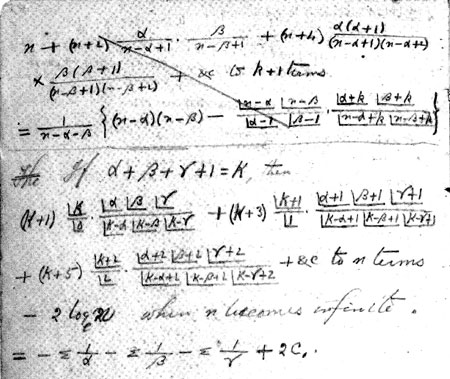 n + (n+2) α/(n-α+1) · β/(n-β+1) + (n+4) α(α+1)/((n-α+1)(n-α+2))
× β(β+1)/((n-β+1)(n-β+2)) + &c to k+1 terms
= 1/(n-α-β) {(n-α)(n-β) - |n-α |n-β/(|α-1 |β-1) · |α+k |β+k/(|n-α+k |n-β+k)}
If α+β+γ+1=K, then
(K+1) |K/|0 · |α |β |γ/(|K-α |K-β |K-γ) + (K+3) |K+1/|1 · |α+1 |β+1 |γ+1/(|K-α+1 |K-β+1 |K-γ+1)
+ (K+5) |K+2/|2 · |α+2 |β+2 |γ+2/(|K-α+2 |K-β+2 |K-γ+2) + &c to n terms
- 2 logₑ n when n becomes infinite.
= - Σ 1/α - Σ 1/β - Σ 1/γ + 2C.